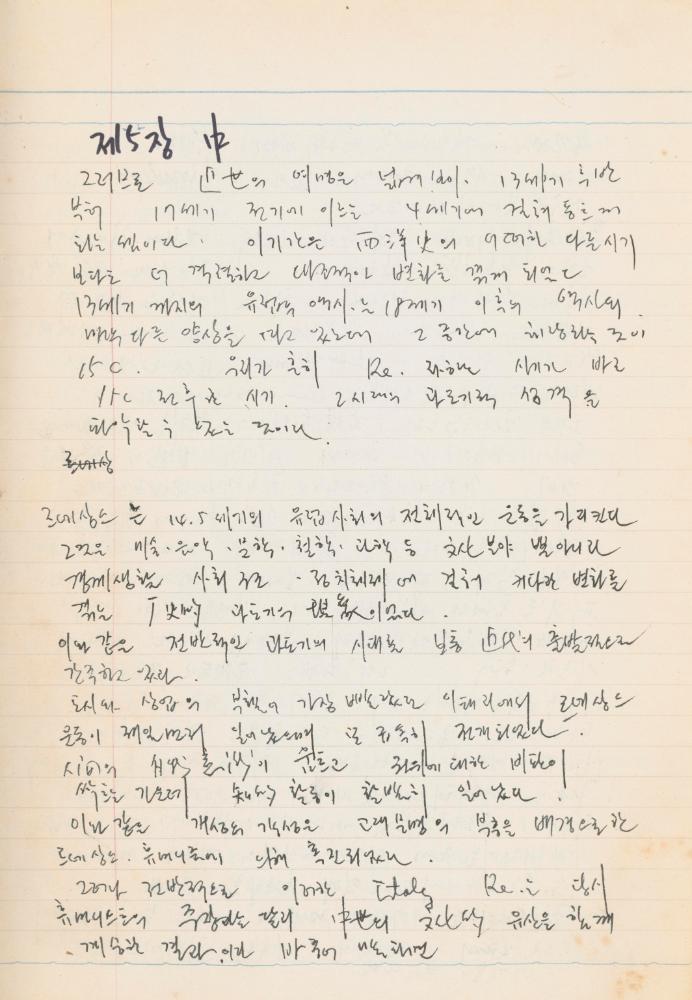 제5장 中
그러므로 近世의 여명은 넓게 보아. 13세기 후반
부터 17세기 전기에 이르는 4세기에 걸쳐 동트게
되는 셈이다. 이기간은 西洋史의 어떠한 다른시기
보다도 더 격렬하고 변화를 겪게 되었다
13세기 까지의 유럽의 역사는 18세기 이후의 역사와
다른 양상을 띠고 있는데 그 중간에 해당하는 것이
15C. 우리가 흔히 Re. 라하는 시기가 바로
15C 전후한 시기. 그시대의 과도기적 성격을
파악할 수 있는 것이다.
르네상
르네상스는 14.5세기의 유럽사회의 전체적인 운동을 가리킨다
그것은 미술·음악·문학·철학·과학 등 文化분야 뿐아니라
경제생활 사회 구조·정치체제에 걸쳐 커다란 변화를
겪는 历史的 과도기의 현상이었다.
이와 같은 전반적인 과도기의 시대를 보통 近代의 출발점으로
간주하고 있다.
도시와 상업의 부활이 가장 빨랐던 이태리에서 르네상스
운동이 제일먼저 일어났으며 전개되었다.
시민의 움트고 권위에 대한 비판이
싹트는 가운데 知的 활동이 활발히 일어났다.
이와 같은 개성의 각성은 고대문명의 부흥을 배경으로한
르네상스. 휴머니즘에 의해 촉진되었다.
그러나 전반적으로 이러한 Italy Re.는 당시
휴머니스트의 주장과는 달리 中世의 文化的 유산을 함께
계승한 결과이다 바꾸어 말하면